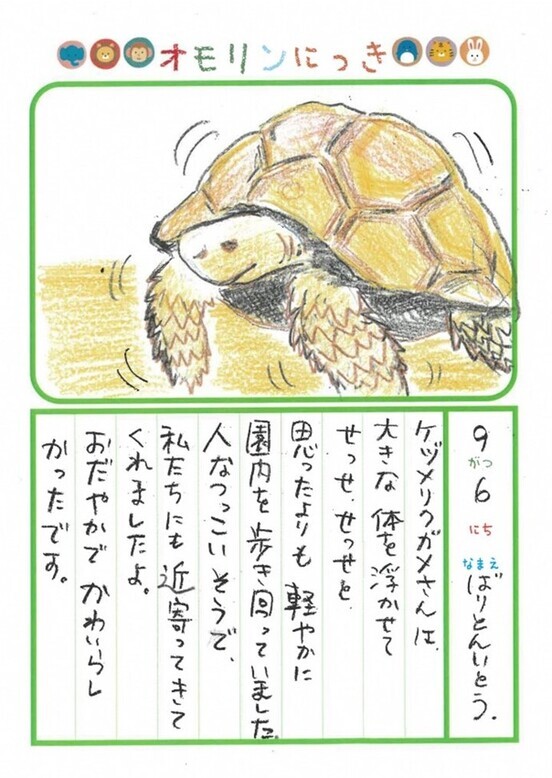 オモリンにっき
9がつ6にち
なまえ ばりとんいとう。
ケヅメリクガメさんは、
大きな体を浮かせて
せっせ、せっせと
思ったよりも軽やかに
園内を歩き回っていました。
人なつっこいそうで、
私たちにも近寄ってきて
くれましたよ。
おだやかでかわいらし
かったです。